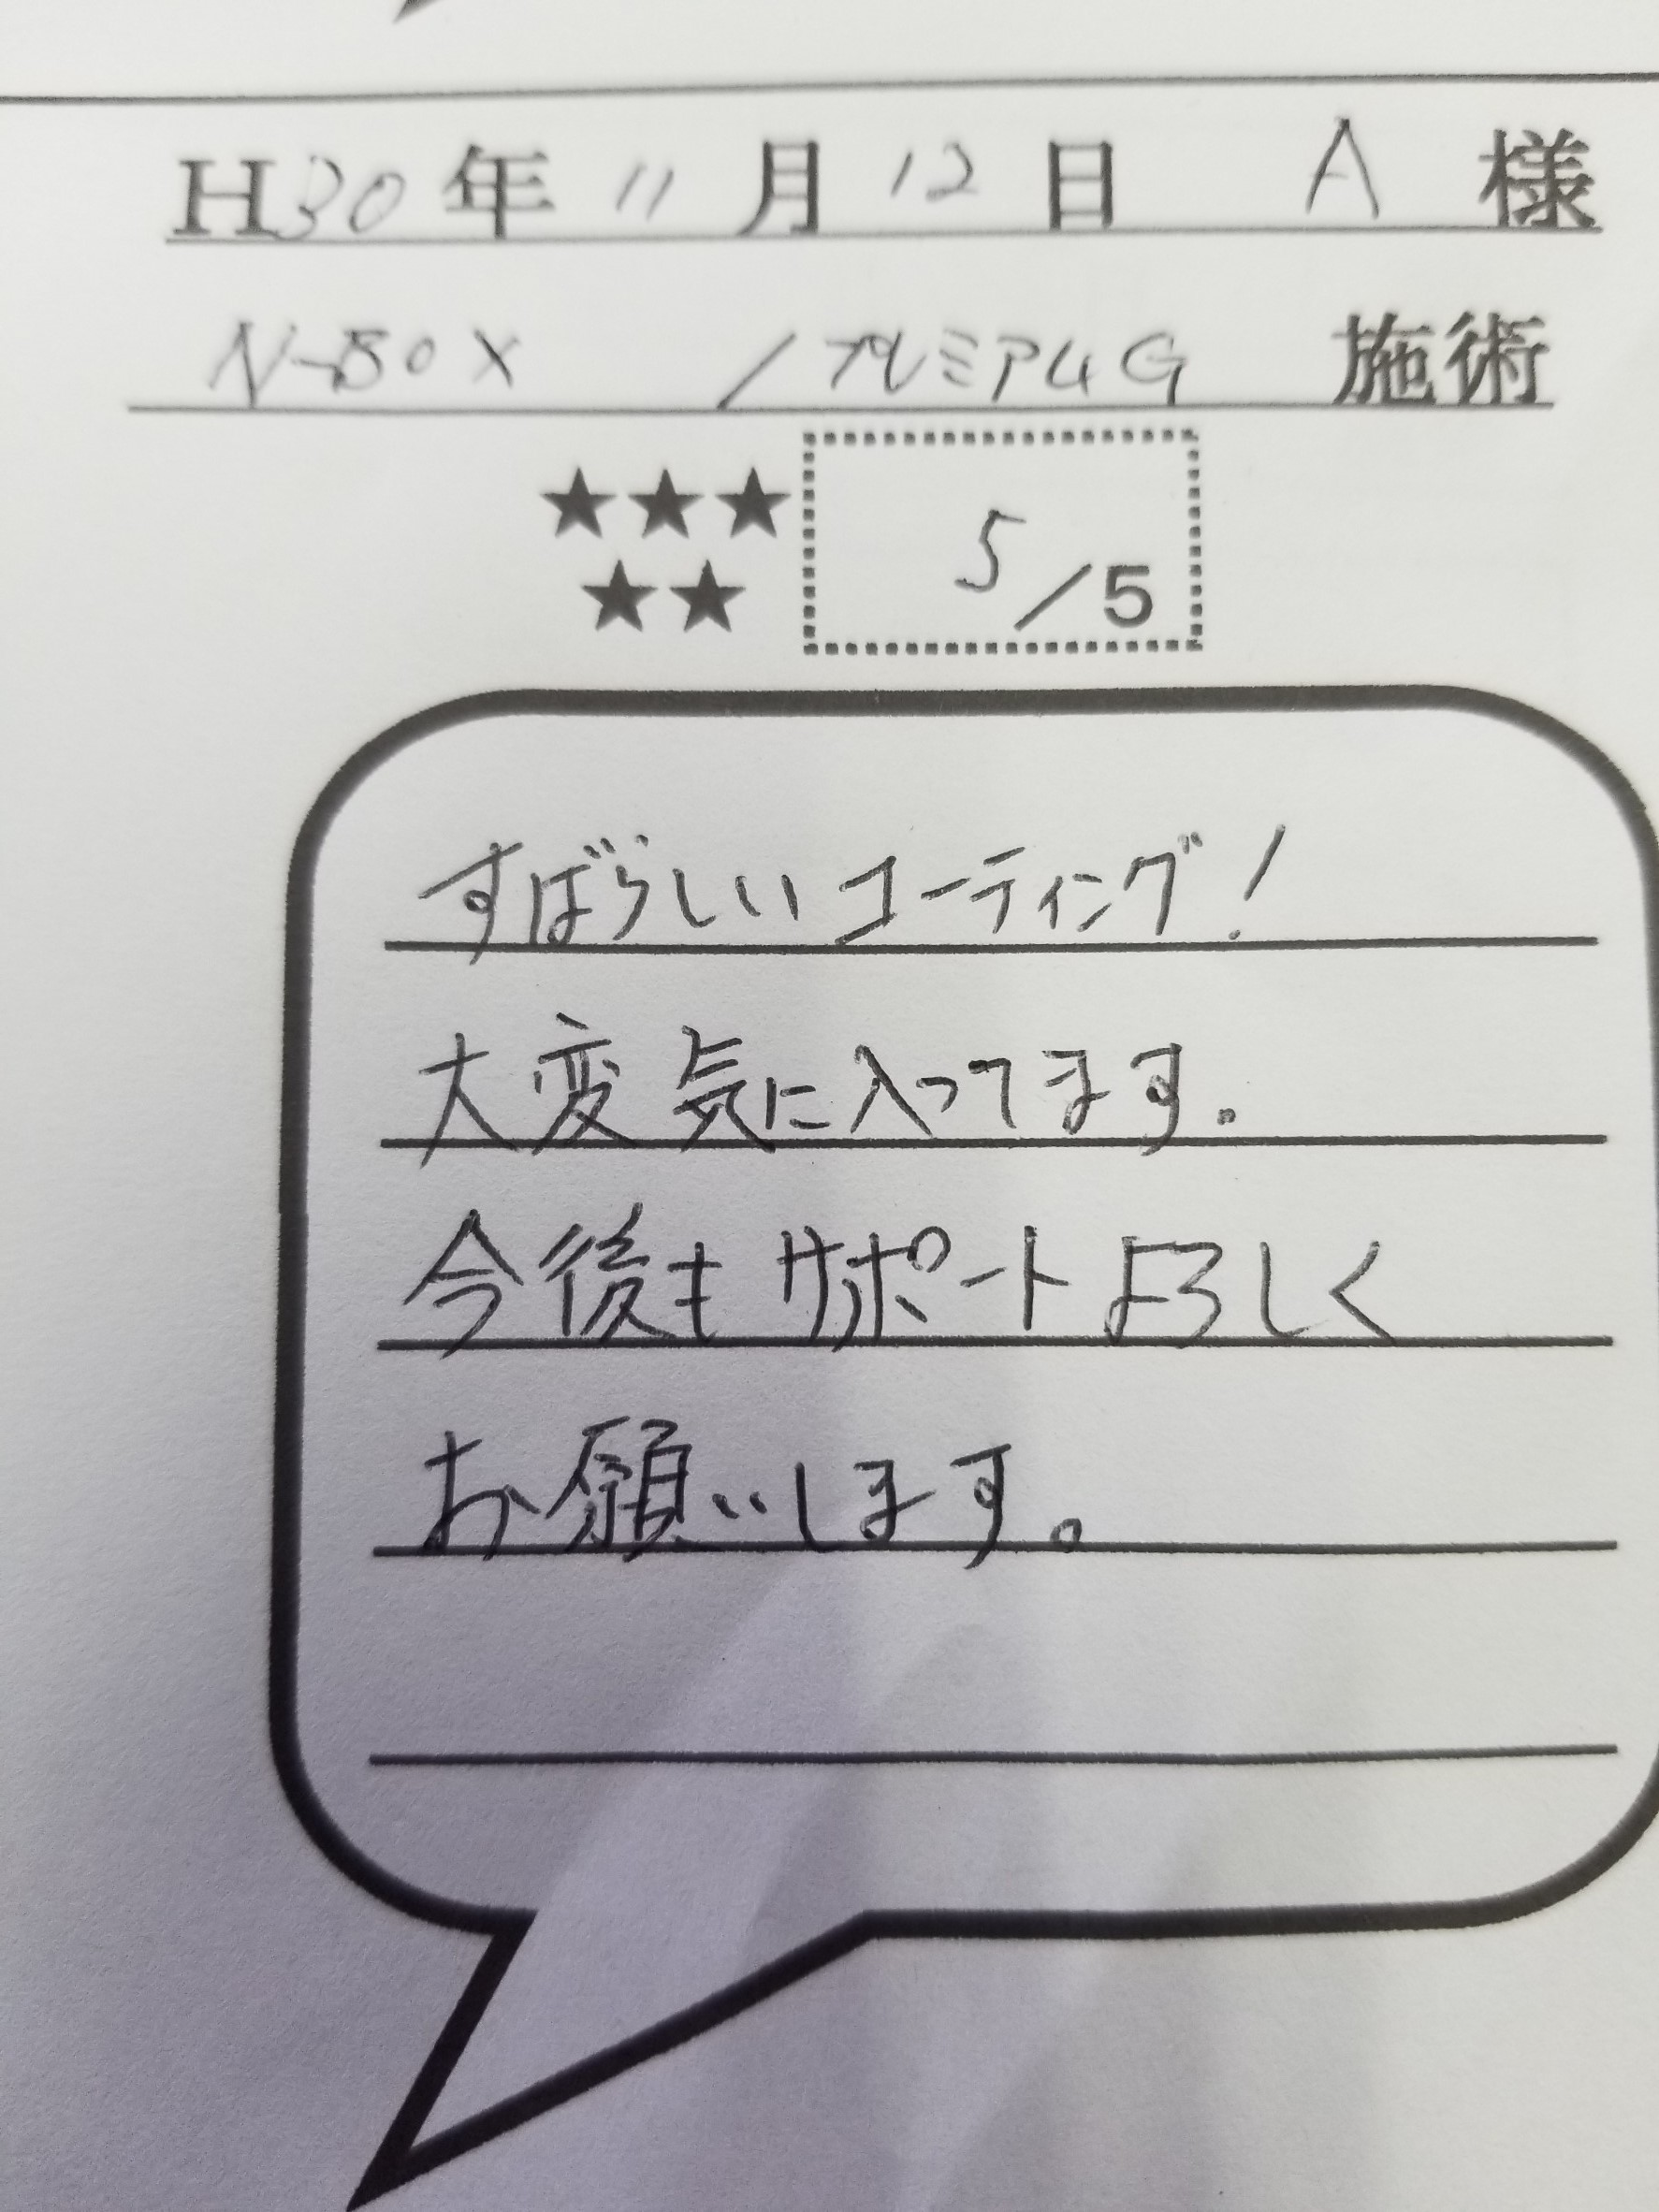 H30年 11月 12日 A 様
N-BOX /プレミアムG 施術
★★★
★★
5/5
すばらしいコーティング!
大変気に入ってます.
今後もサポートよろしく
お願いします。